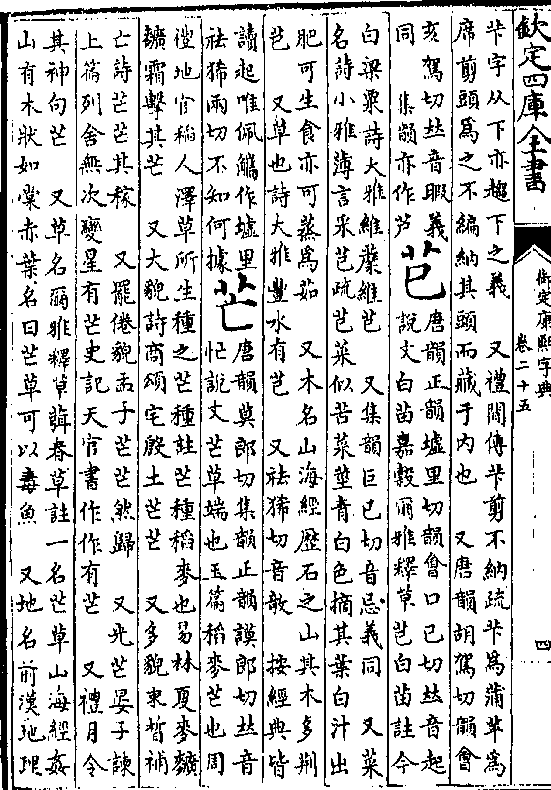 欽定四庫全書
御定康熙字典
卷二十五
四
芐字从下亦趨下之義　又禮閒傳芐剪不納疏芐爲蒲苹爲
席剪頭爲之不編納其頭而藏于內也　又唐韻胡駕切韻會
亥駕切𠀤音暇義
同　集韻亦作芦
芑
唐韻正韻墟里切韻會口已切𠀤音起
說文白苗嘉穀爾雅釋草芑白苗註今
白梁粟詩大雅維穈維芑　又集韻巨已切音忌義同　又菜
名詩小雅薄言采芑疏芑菜似苦菜莖青白色摘其葉白汁出
肥可生食亦可蒸爲茹　又木名山海經歷石之山其木多荆
芑　又草也詩大雅豐水有芑　又袪狶切音敧　按經典皆
讀起唯佩觿作墟里
祛狶兩切不知何據
芒
唐韻莫郎切集韻正韻謨郎切𠀤音
忙說文芒草端也玉篇稻麥芒也周
禮地官稻人澤草所生種之芒種註芒種稻麥也易林夏麥𪍿
䵃霜擊其芒　又大貌詩商頌宅殷土芒芒　又多貌束晳補
亡詩芒芒其稼　又罷倦貌孟子芒芒然歸　又光芒晏子諫
上篇列舍無次變星有芒史記天官書作作有芒　又禮月令
其神句芒　又草名爾雅釋草蕵春草註一名芒草山海經葌
山有木狀如棠赤葉名曰芒草可以毒魚　又地名前漢地理